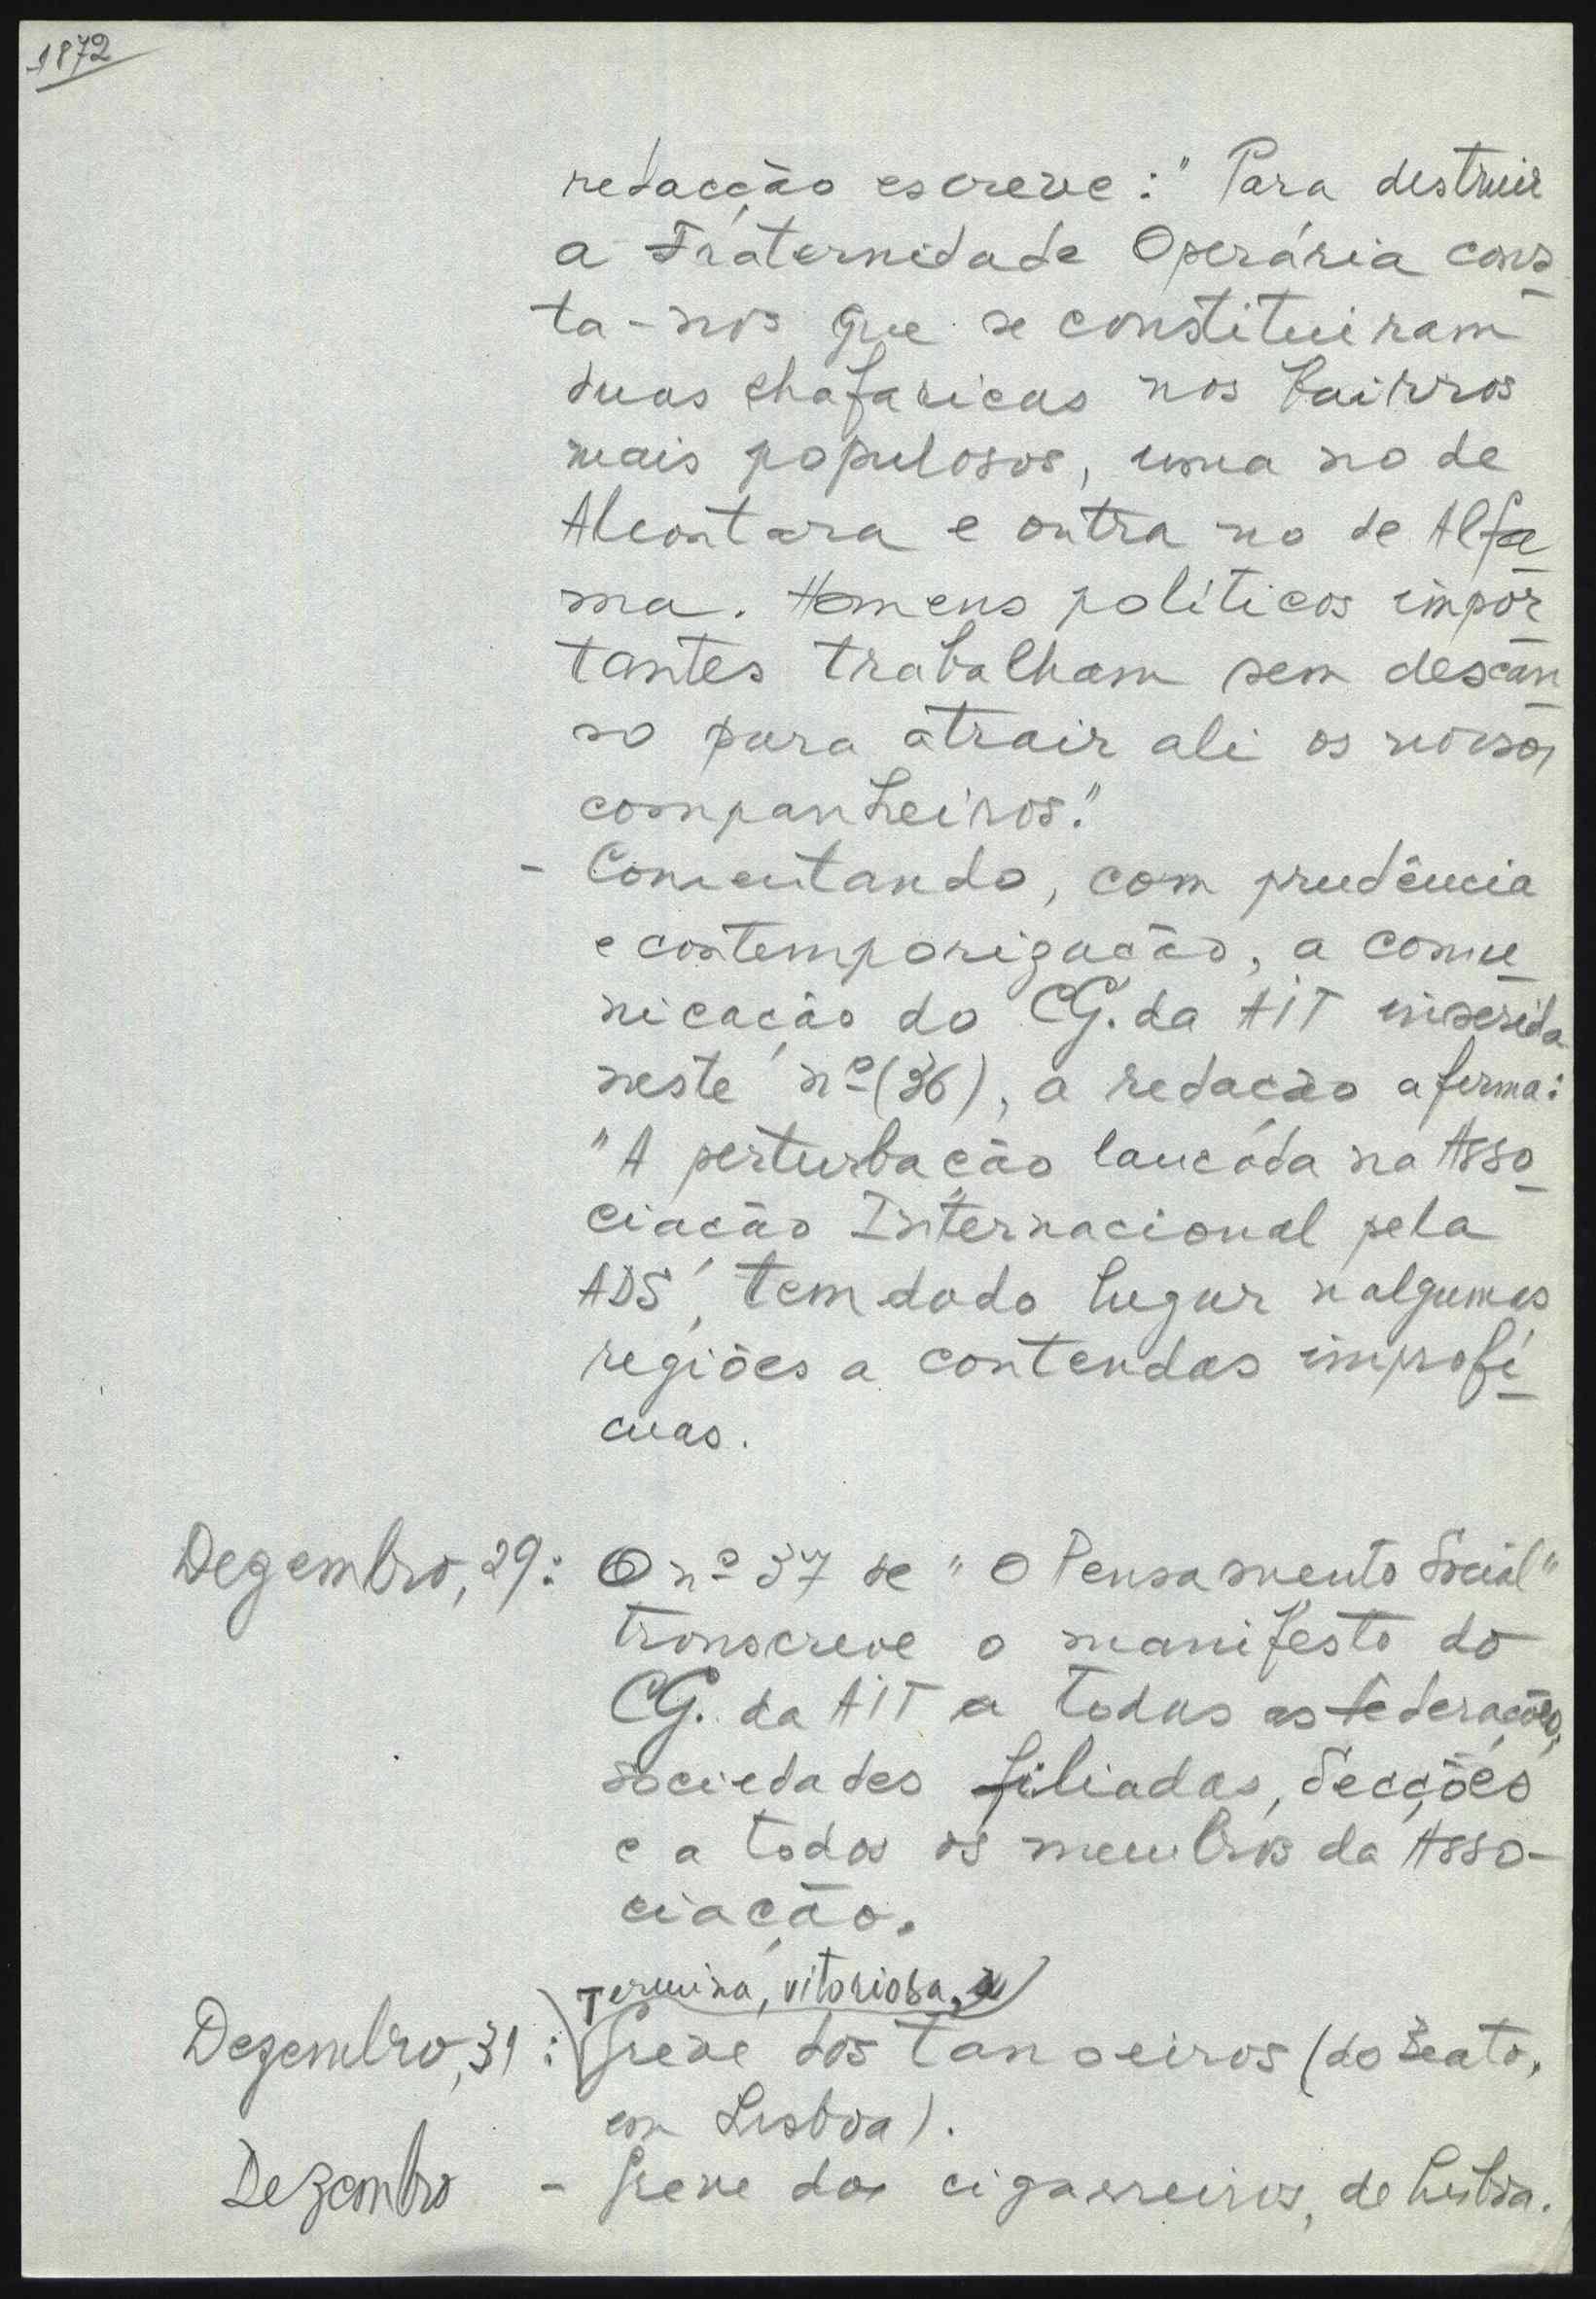 1872
redacção escreve: "Para destruir
a Fraternidade Operária cons
ta-nos que se constituiram
duas chafaricas nos bairros
mais populosos, uma no de
Alcântara e outra no de Alfa
ma. Homens políticos impor
tantes trabalham sem descan
so para atrair ali os nossos
companheiros."
- Comentando, com prudência
e contemporização, a comu
nicação do CG. da AIT inserida
neste nº (36), a redação afirma:
"A perturbação lançada na Asso
ciação Internacional pela
ADS, tem dado lugar nalgumas
regiões a contendas improfí
cuas.
Dezembro, 29: O nº 37 de "O Pensamento Social"
transcreve o manifesto do
CG. da AIT a todas as federações,
sociedades filiadas, Secções
e a todos os membros da Asso-
ciação.
Termina, vitoriosa, a
Dezembro, 31: Greve dos tanoeiros (do Beato,
em Lisboa).
Dezembro - Greve dos cigarreiros, de Lisboa.